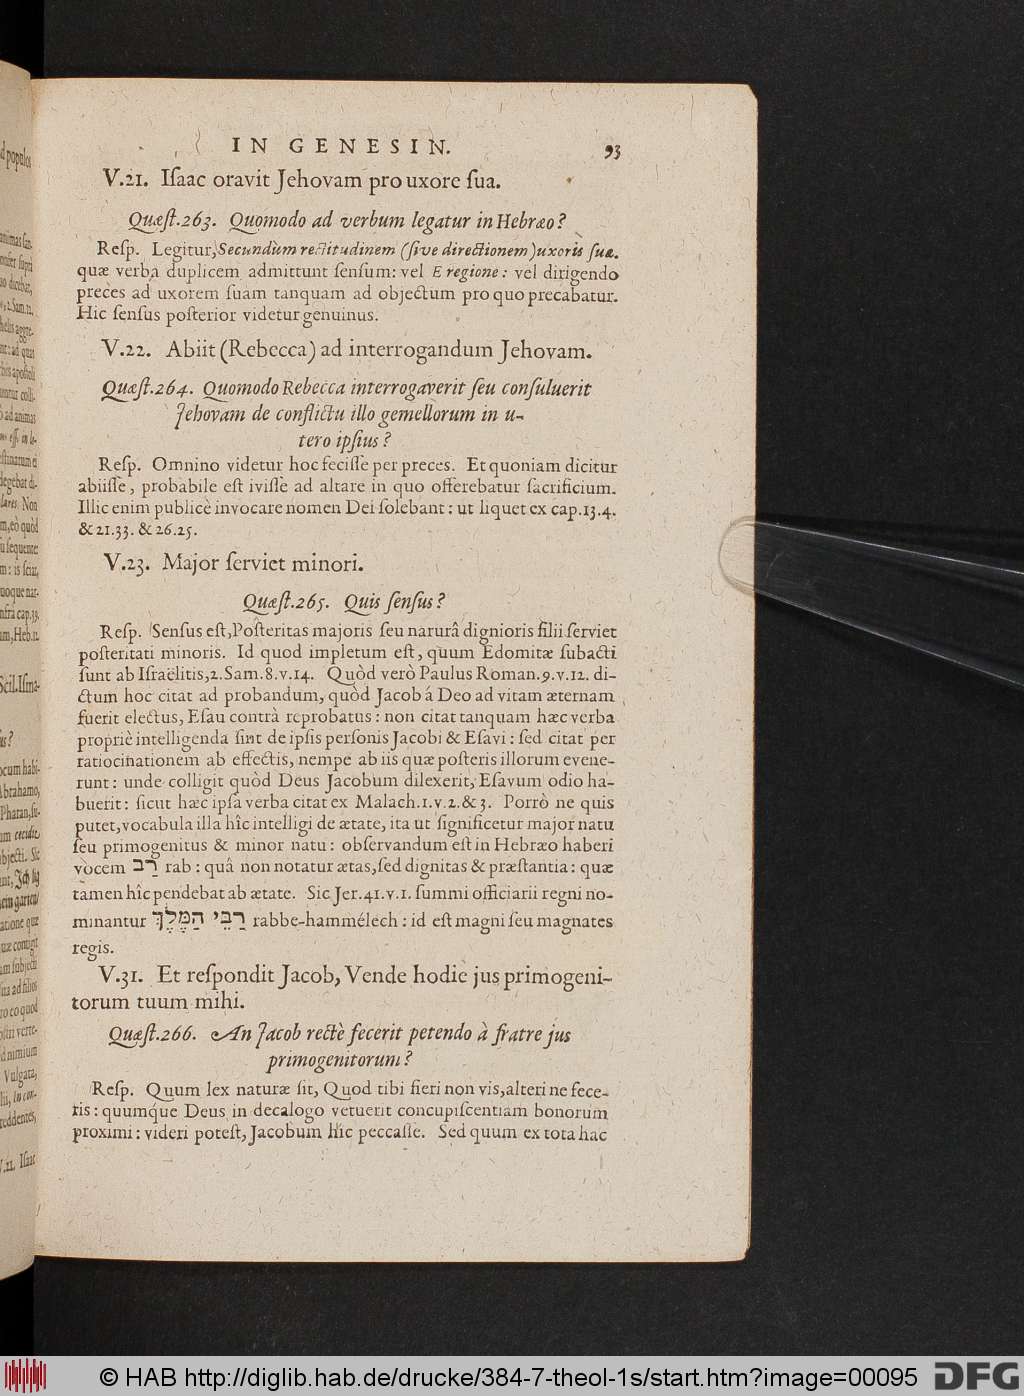 IN GENESIN. 93
V.21. Iſaac oravit Jehovam pro uxore ſua.
Quæſt.263. Quomodo ad verbum legatur in Hebræo?
Reſp. Legitur, Secundùm rectitudinem (ſive directionem) uxoris ſuæ.
quæ verba duplicem admittunt ſenſum: vel E regione: vel dirigendo
preces ad uxorem ſuam tanquam ad objectum pro quo precabatur.
Hic ſenſus poſterior videtur genuinus.
V.22. Abiit (Rebecca) ad interrogandum Jehovam.
Quæſt.264. Quomodo Rebecca interrogaverit ſeu conſuluerit
Jehovam de conflictu illo gemellorum in u-
tero ipſius?
Reſp. Omnino videtur hoc feciſſe per preces. Et quoniam dicitur
abiiſſe, probabile eſt iviſſe ad altare in quo offerebatur ſacrificium.
Illic enim publicè invocare nomen Dei ſolebant: ut liquet ex cap.13.4.
& 21.33. & 26.25.
V.23. Major ſerviet minori.
Quæſt.265. Quis ſenſus?
Reſp. Senſus eſt, Poſteritas majoris ſeu naturâ dignioris filii ſerviet
poſteritati minoris. Id quod impletum eſt, quum Edomitæ ſubacti
ſunt ab Iſraëlitis, 2.Sam.8.v.14. Quòd verò Paulus Roman.9.v.12. di-
ctum hoc citat ad probandum, quòd Jacob á Deo ad vitam æternam
fuerit electus, Eſau contrà reprobatus: non citat tanquam hæc verba
propriè intelligenda ſint de ipſis perſonis Jacobi & Eſavi: ſed citat per
ratiocinationem ab effectis, nempe ab iis quæ poſteris illorum evene-
runt: unde colligit quòd Deus Jacobum dilexerit, Eſavum odio ha-
buerit: ſicut hæc ipſa verba citat ex Malach.1.v.2.& 3. Porrò ne quis
putet, vocabula illa hîc intelligi de ætate, ita ut ſignificetur major natu
ſeu primogenitus & minor natu: obſervandum eſt in Hebræo haberi
vocem רַב rab: quâ non notatur ætas, ſed dignitas & præſtantia: quæ
tamen hîc pendebat ab ætate. Sic Jer.41.v.1. ſummi officiarii regni no-
minantur רַבֵּי הַמֶּלֶךְ rabbe-hammélech: id eſt magni ſeu magnates
regis.
V.31. Et reſpondit Jacob, Vende hodie jus primogeni-
torum tuum mihi.
Quæſt.266. An Jacob rectè fecerit petendo à fratre jus
primogenitorum?
Reſp. Quum lex naturæ ſit, Quod tibi fieri non vis, alteri ne fece-
ris: quumque Deus in decalogo vetuerit concupiſcentiam bonorum
proximi: videri poteſt, Jacobum hîc peccaſſe. Sed quum ex tota hac
© HAB http://diglib.hab.de/drucke/384-7-theol-1s/start.htm?image=00095
DFG